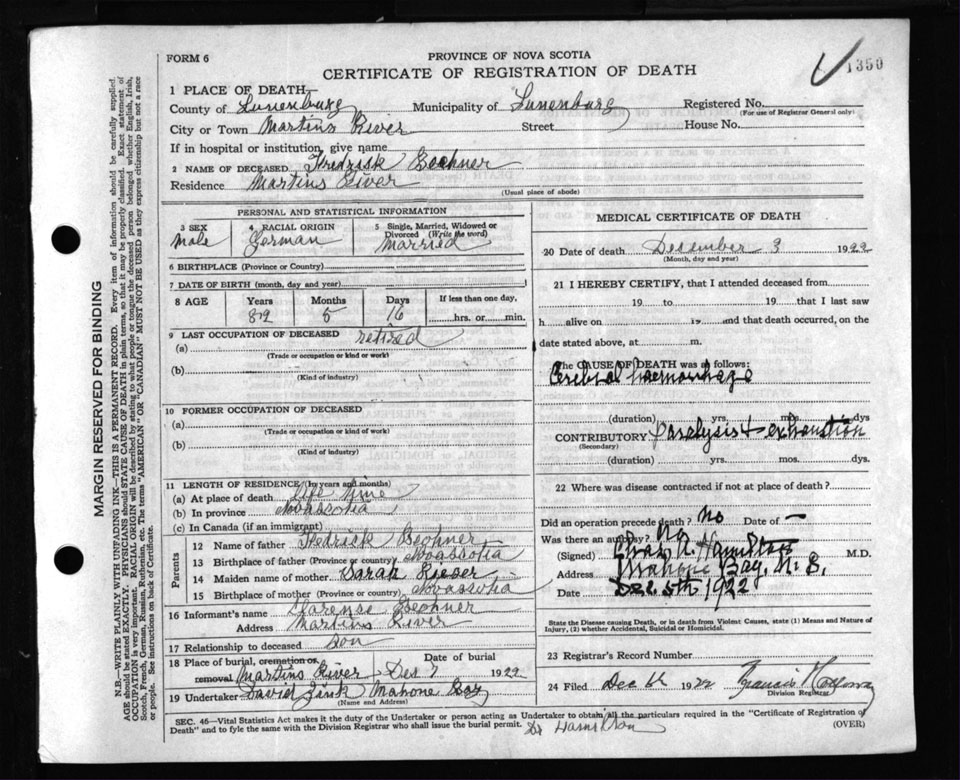 FORM 6
PROVINCE OF NOVA SCOTIA
CERTIFICATE OF REGISTRATION OF DEATH
1350
1 PLACE OF DEATH
County of Lunenburg Municipality of Lunenburg Registered No.
(For use of Registrar General only)
City or Town Martins River Street House No.
If in hospital or institution, give name
2 NAME OF DECEASED Fredrisk Bechner
Residence Martins River
(Usual place of abode)
PERSONAL AND STATISTICAL INFORMATION
3 SEX Male
4 RACIAL ORIGIN German
5 Single, Married, Widowed or Divorced (Write the word) Married
6 BIRTHPLACE (Province or Country)
7 DATE OF BIRTH (month, day and year)
8 AGE Years Months Days If less than one day,
82 5 16 hrs. or min.
9 LAST OCCUPATION OF DECEASED retired
(a)
(Trade or occupation or kind or work)
(b)
(Kind of industry)
10 FORMER OCCUPATION OF DECEASED
(a)
(Trade or occupation or kind or work)
(b)
(Kind of industry)
11 LENGTH OF RESIDENCE (In years and months)
(a) At place of death Life time
(b) In province Novascotia
(c) In Canada (if an immigrant)
Parents
12 Name of father Fedrick Bechner
13 Birthplace of father (Province or country) Novascotia
14 Maiden name of mother Sarah
15 Birthplace of mother (Province or country) Novassotia
16 Informant's name Clarense Bechner
Address Martins River
17 Relationship to deceased Son
18 Place of burial, cremation or removal Martins River Date of burial Des 7 1922
19 Undertaker David Zink Mahone Bay
(Name and Address)
MEDICAL CERTIFICATE OF DEATH
20 Date of death Desember 3 1922
(Month, day and year)
21 I HEREBY CERTIFY, that I attended deceased from
19 to 19 that I last saw
h alive on 19 and that death occurred, on the
date stated above, at m.
The CAUSE OF DEATH was as follows:
Cerebral haemorrhage
(duration) yrs. mos. dys
CONTRIBUTORY paralysis + exhaustion
(Secondary)
(duration) yrs. mos. dys.
22 Where was disease contracted if not at place of death?
Did an operation precede death? No Date of —
Was there an autopsy? No
(Signed) Chas. A. Hamilton M.D.
Address Mahone Bay, N. S.
Date Dec. 5th 1922
State the Disease causing Death, or in death from Violent Causes, state (1) Means and Nature of
Injury, (2) whether Accidental, Suicidal or Homicidal.
23 Registrar's Record Number
24 Filed Dec 1922 Francis
Division Registrar
SEC. 46—Vital Statistics Act makes it the duty of the Undertaker or person acting as Undertaker to obtain all the particulars required in the "Certificate of Registration of
Death" and to fyle the same with the Division Registrar who shall issue the burial permit. Dr Hamilton (OVER)
MARGIN RESERVED FOR BINDING
N.B.—WRITE PLAINLY WITH UNFADING INK—THIS IS A PERMANENT RECORD. Every item of information should be carefully supplied.
AGE should be stated EXACTLY. PHYSICIANS should STATE CAUSE OF DEATH in plain terms, so that it may be properly classified. Exact statement of
OCCUPATION is very important. RACIAL ORIGIN will be described by stating to what people or tongue the deceased person belonged whether English, Irish,
Scotch, French, German, Russian, Ruthenian, etc. The terms "AMERICAN" OR "CANADIAN" MUST NOT BE USED as they express citizenship but not a race
or people. See instructions on back of Certificate.